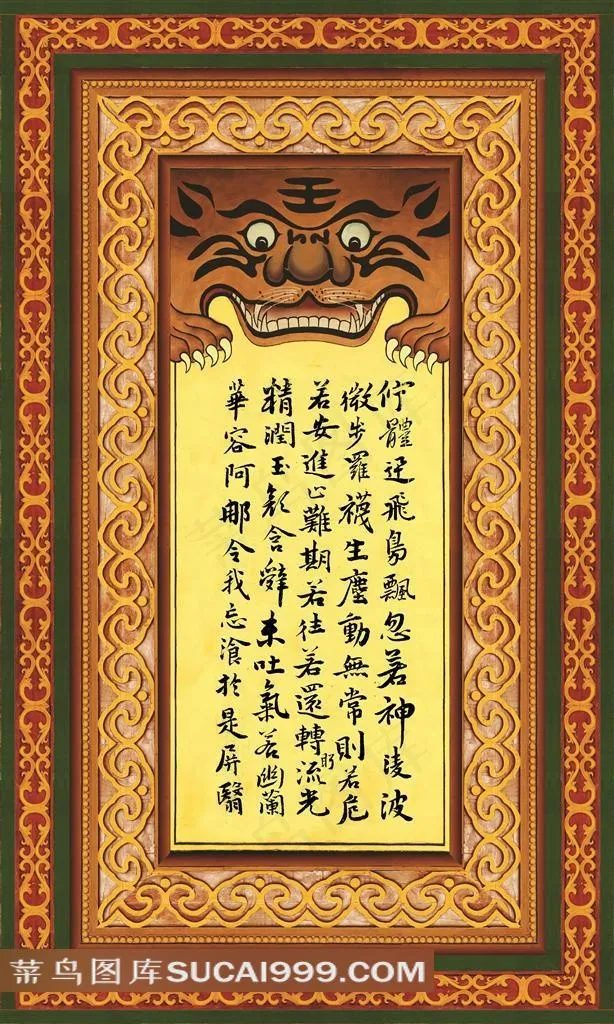 王
佇體迅飛鳧飄忽若神陵波
微步羅襪生塵動無常則若危
若安進止難期若往若還轉眄流光
精潤玉顏含辭未吐氣若幽蘭
華容阿那令我忘湌於是屏翳
菜鸟图库SUCAI999.COM